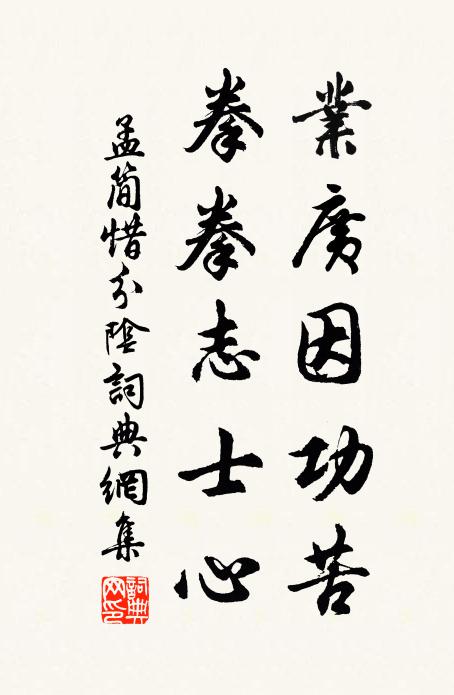 業廣因功苦
拳拳志士心
孟簡惜分陰詞典網集
詞典网印